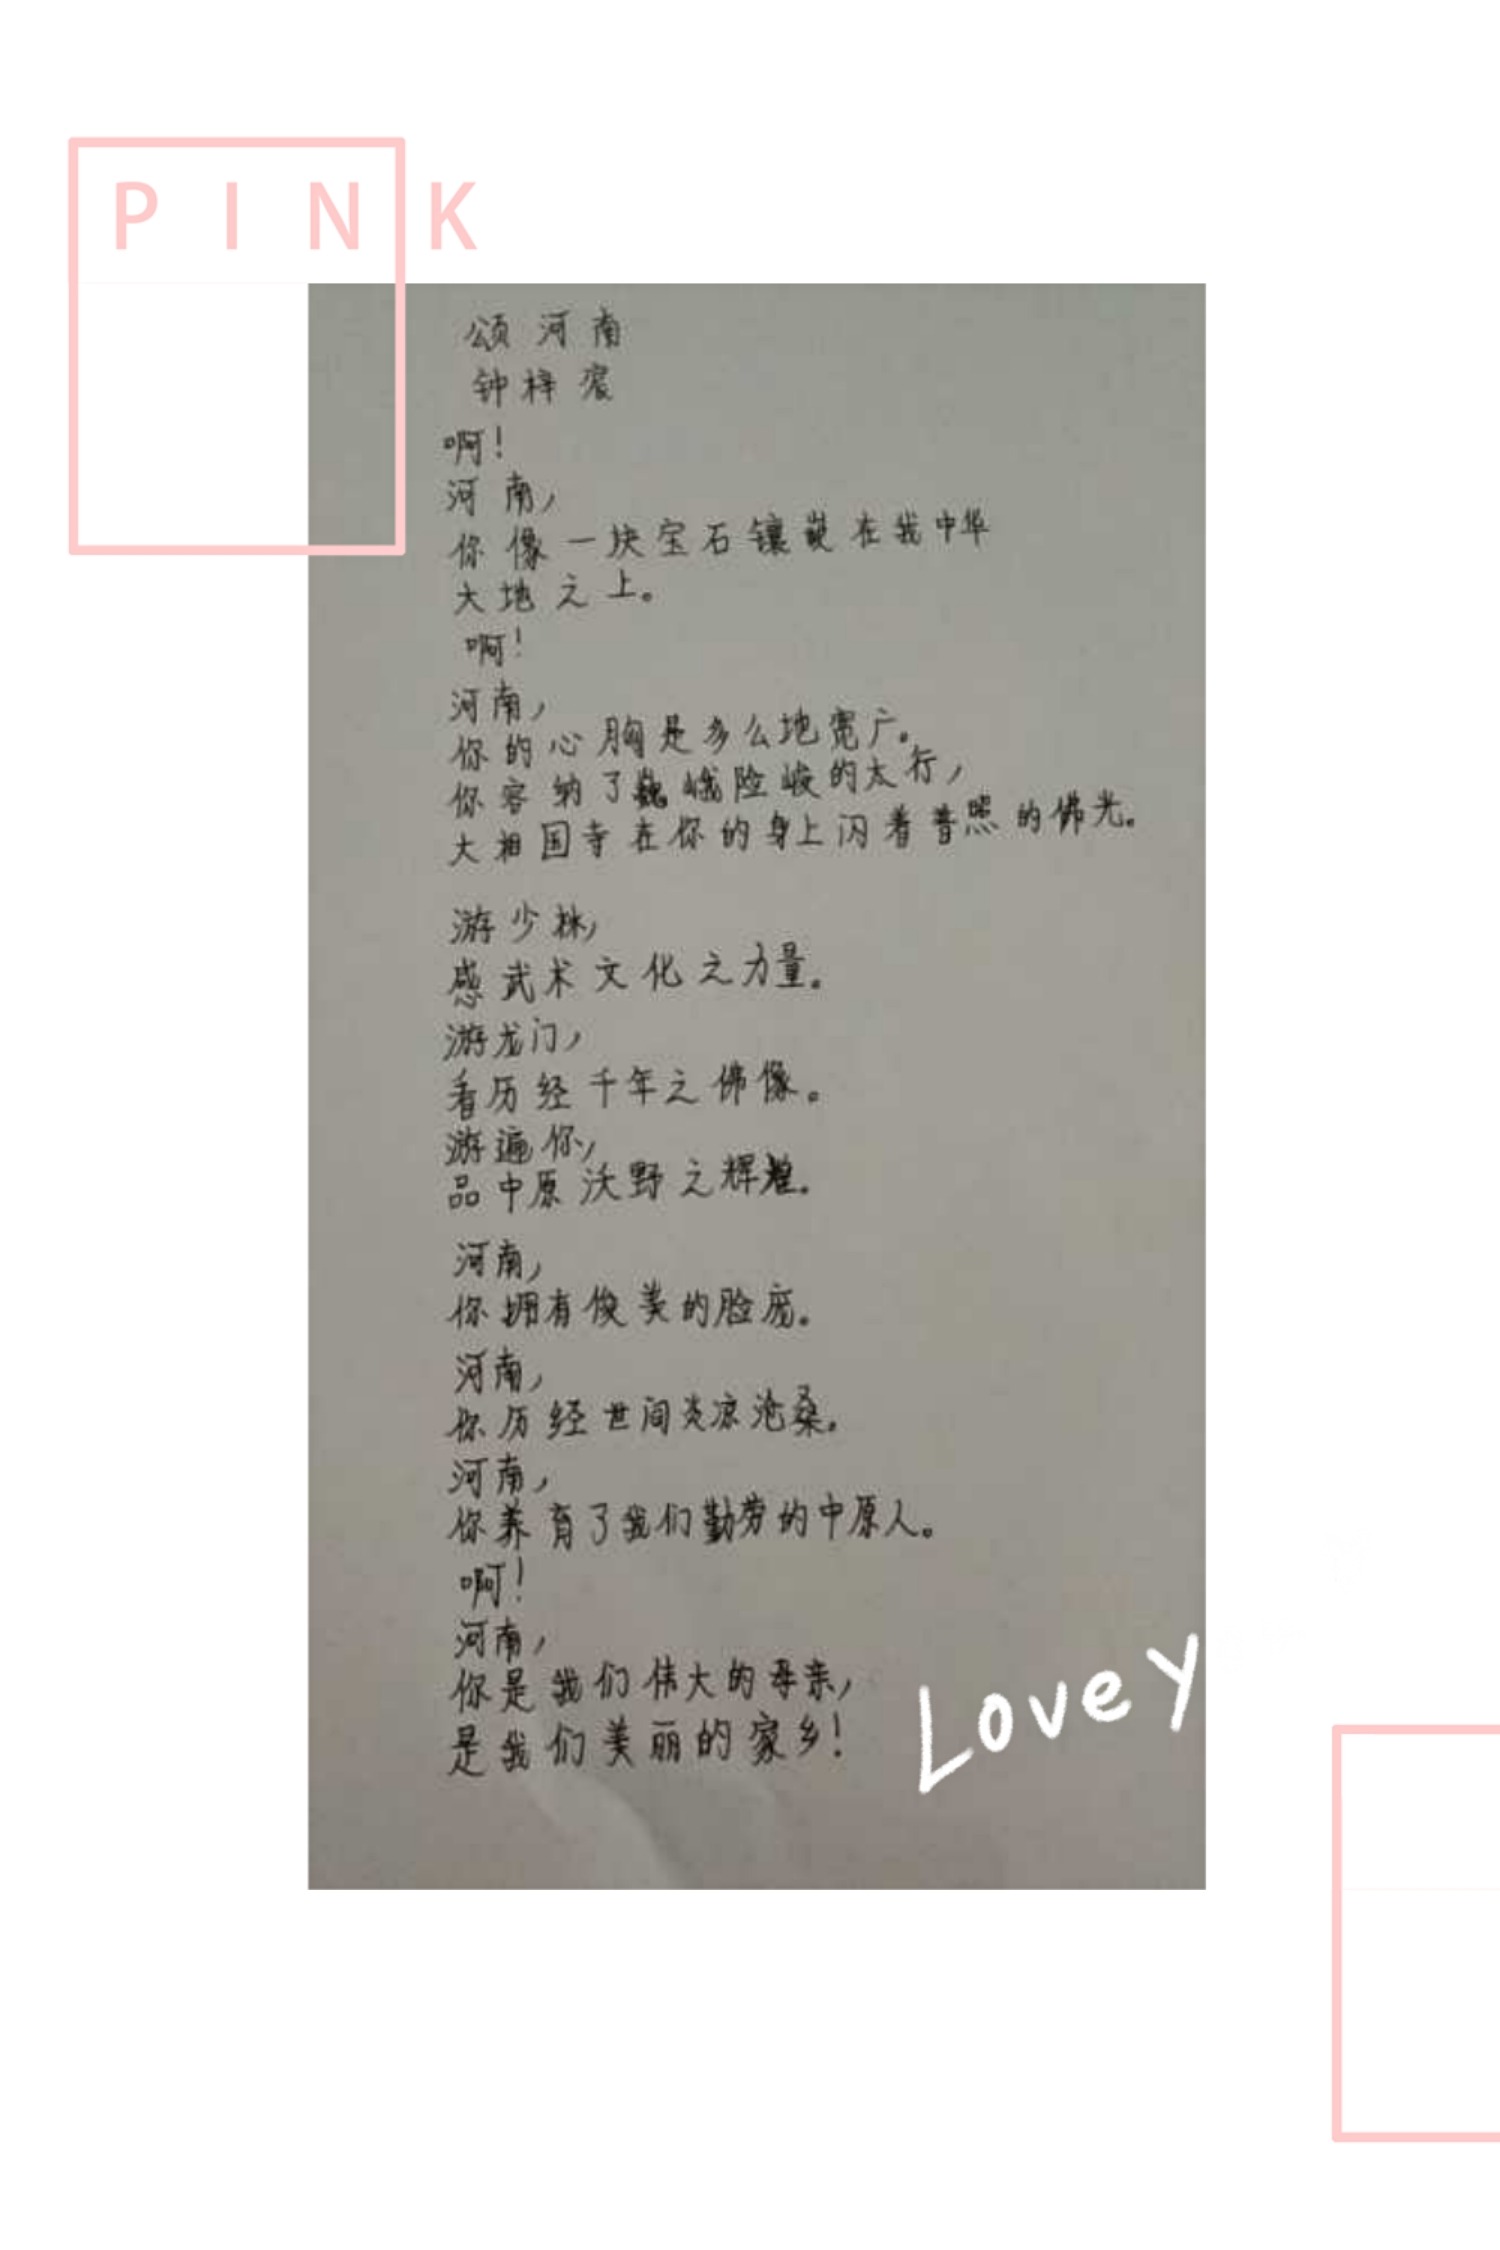 PINK
颂河南
钟梓宸
啊!
河南,
你像一块宝石镶嵌在我中华
大地之上。
啊!
河南,
你的心胸是多么地宽广。
你容纳了巍峨险峻的太行,
大相国寺在你的身上闪着普照的佛光。
游少林,
感武术文化之力量。
游龙门,
看历经千年之佛像。
游遍你,
品中原沃野之辉煌。
河南,
你拥有俊美的脸庞。
河南,
你历经世间炎凉沧桑。
河南,
你养育了我们勤劳的中原人。
啊!
河南,
你是我们伟大的母亲,
是我们美丽的家乡!
Lovey